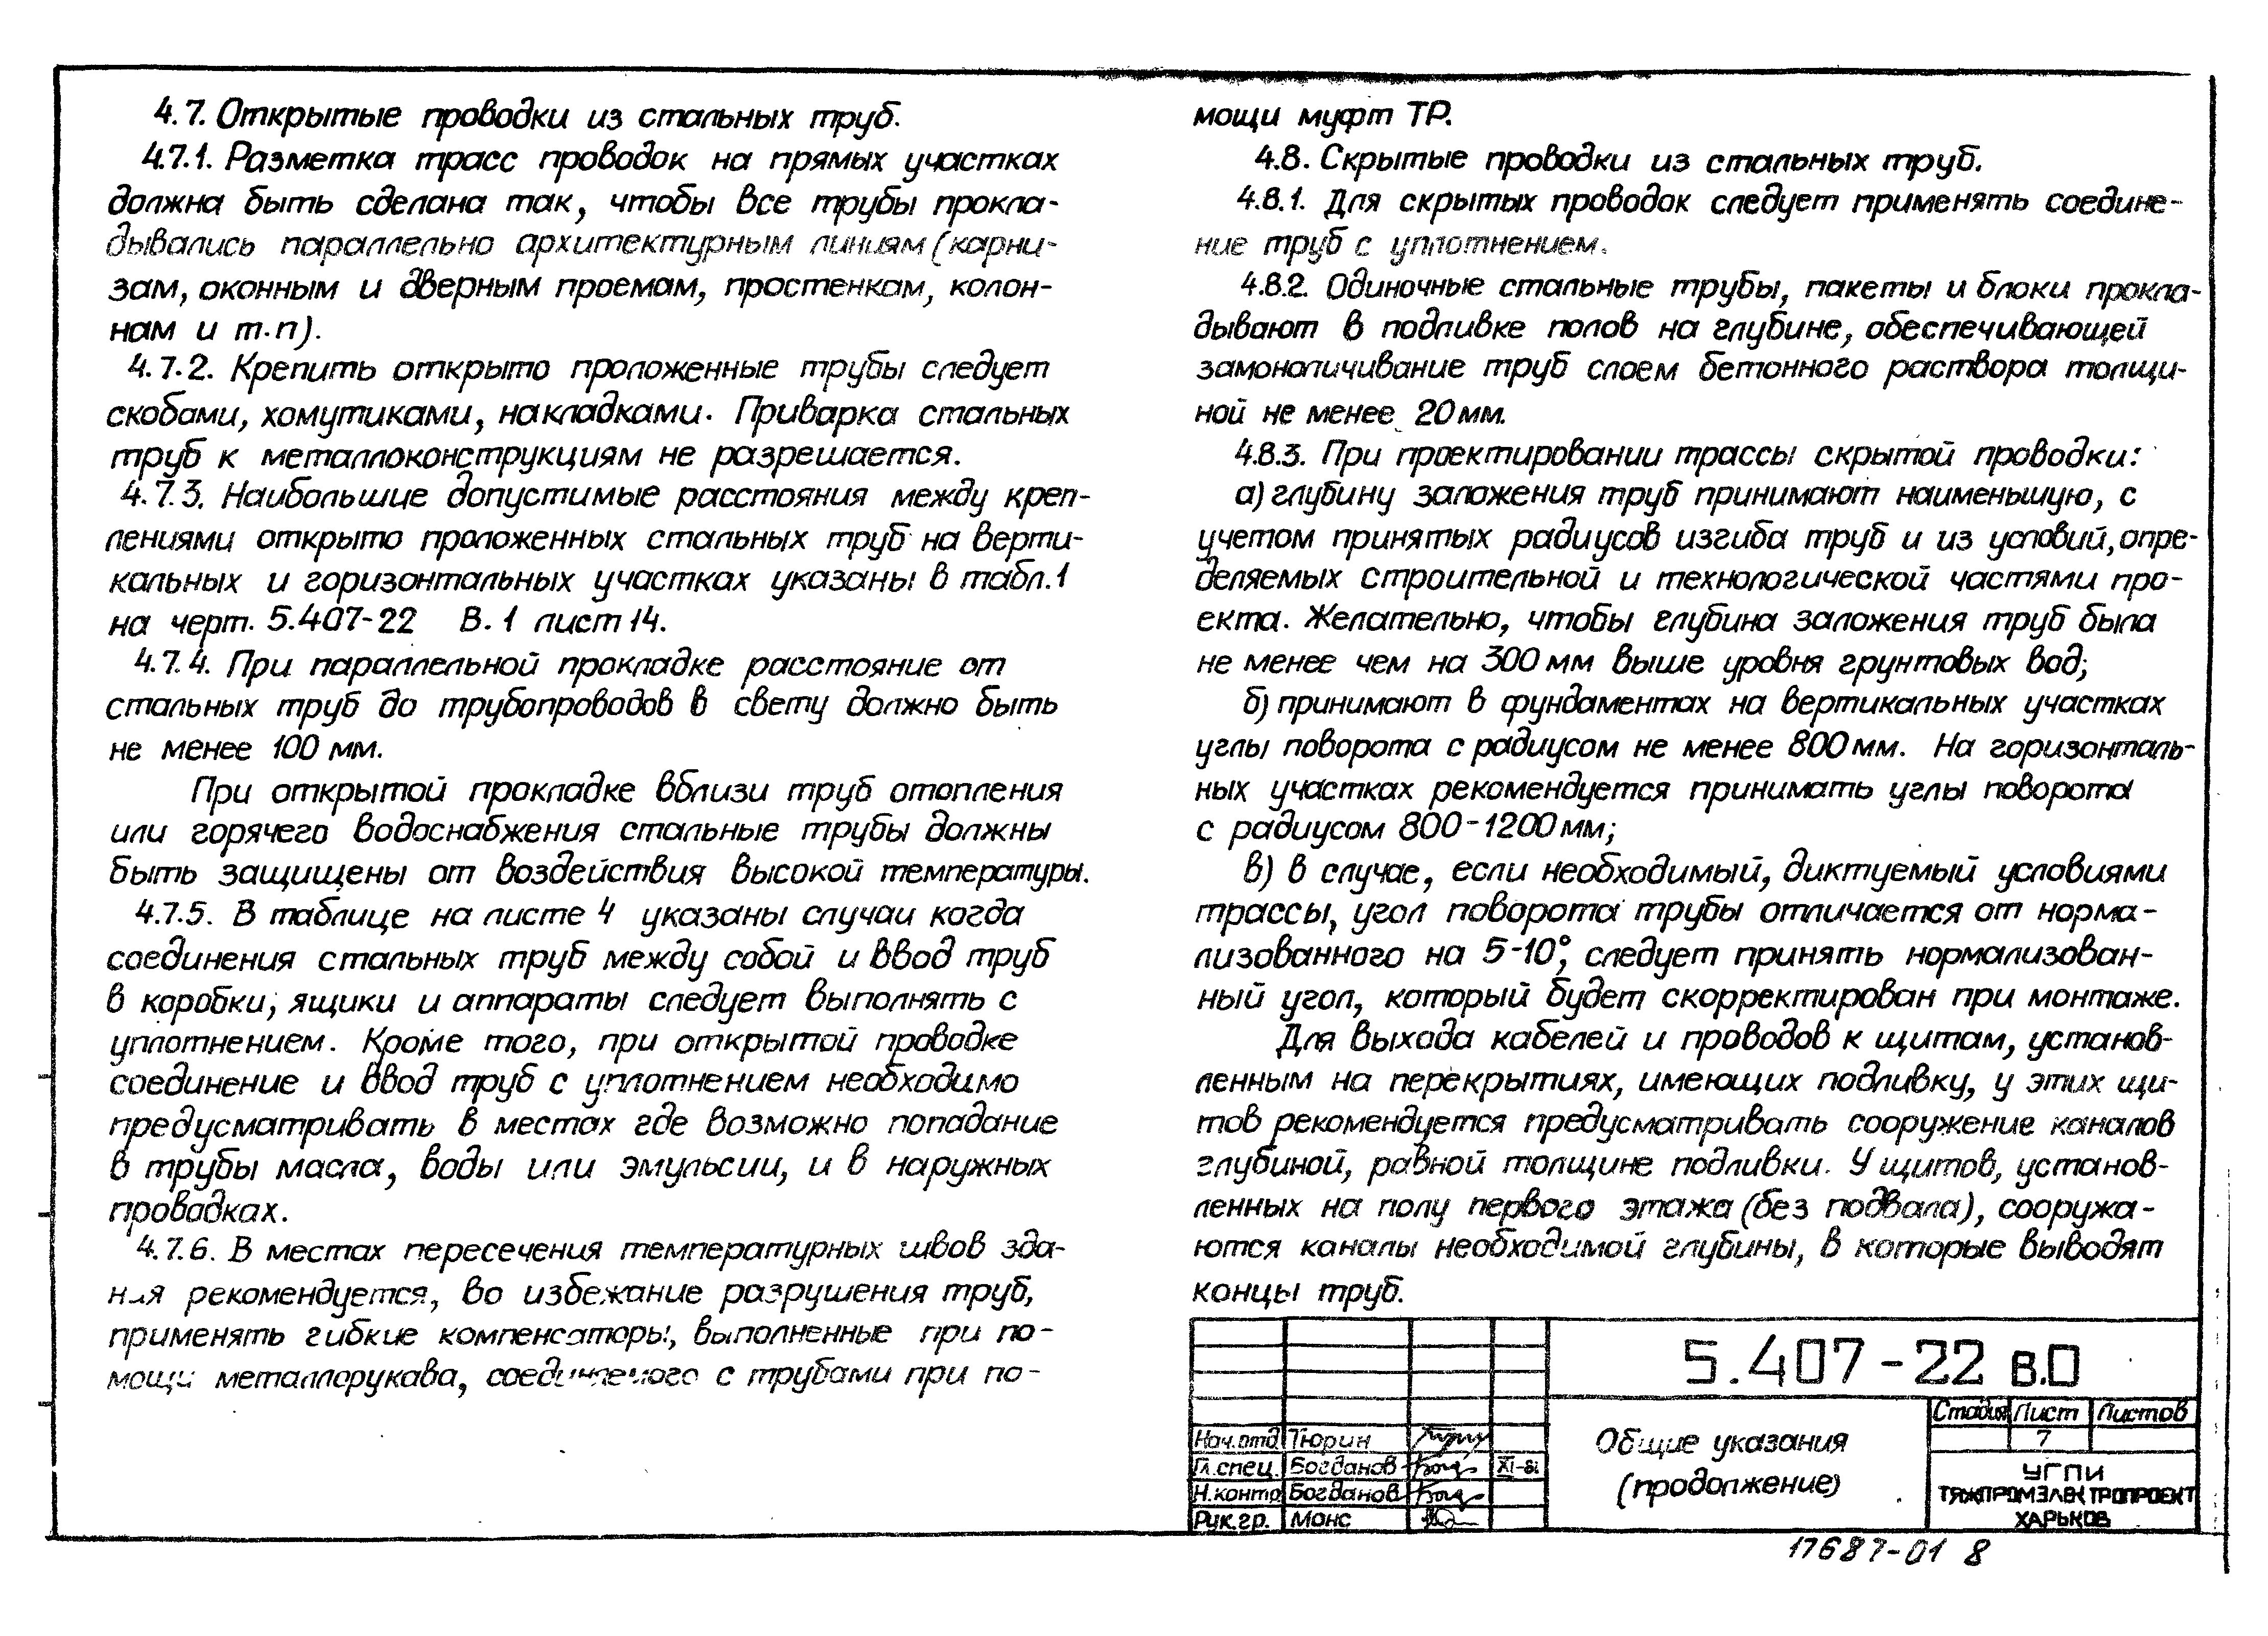 4.7. Открытые проводки из стальных труб.
4.7.1. Разметка трасс проводок на прямых участках
должна быть сделана так, чтобы все трубы прокла-
дывались параллельно архитектурным линиям (карни-
зам, оконным и дверным проемам, простенкам, колон-
нам и т.п).
4.7.2. Крепить открыто проложенные трубы следует
скобами, хомутиками, накладками. Приварка стальных
труб к металлоконструкциям не разрешается.
4.7.3. Наибольшие допустимые расстояния между креп-
лениями открыто проложенных стальных труб на верти-
кальных и горизонтальных участках указаны в табл.1
на черт. 5.407-22 В.1 лист 14.
4.7.4. При параллельной прокладке расстояние от
стальных труб до трубопроводов в свету должно быть
не менее 100 мм.
При открытой прокладке вблизи труб отопления
или горячего водоснабжения стальные трубы должны
быть защищены от воздействия высокой температуры.
4.7.5. В таблице на листе 4 указаны случаи когда
соединения стальных труб между собой и ввод труб
в коробки, ящики и аппараты следует выполнять с
уплотнением. Кроме того, при открытой проводке
соединение и ввод труб с уплотнением необходимо
предусматривать в местах где возможно попадание
в трубы масла, воды или эмульсии, и в наружных
проводках.
4.7.6. В местах пересечения температурных швов зда-
ния рекомендуется, во избежание разрушения труб,
применять гибкие компенсаторы, выполненные при по-
мощи металлорукава, соединяемого с трубами при по-
мощи муфт ТР.
4.8. Скрытые проводки из стальных труб.
4.8.1. Для скрытых проводок следует применять соедине-
ние труб с уплотнением.
4.8.2. Одиночные стальные трубы, пакеты и блоки прокла-
дывают в подливке полов на глубине, обеспечивающей
замоноличивание труб слоем бетонного раствора толщи-
ной не менее 20 мм.
4.8.3. При проектировании трассы скрытой проводки:
а) глубину заложения труб принимают наименьшую, с
учетом принятых радиусов изгиба труб и из условий, опре-
деляемых строительной и технологической частями про-
екта. Желательно, чтобы глубина заложения труб была
не менее чем на 300 мм выше уровня грунтовых вод;
б) принимают в фундаментах на вертикальных участках
углы поворота с радиусом не менее 800 мм. На горизонталь-
ных участках рекомендуется принимать углы поворота
с радиусом 800-1200 мм;
в) в случае, если необходимый, диктуемый условиями
трассы, угол поворота трубы отличается от норма-
лизованного на 5-10°, следует принять нормализован-
ный угол, который будет скорректирован при монтаже.
Для выхода кабелей и проводов к щитам, установ-
ленным на перекрытиях, имеющих подливку, у этих щи-
тов рекомендуется предусматривать сооружение каналов
глубиной, равной толщине подливки. У щитов, установ-
ленных на полу первого этажа (без подвала), сооружа-
ются каналы необходимой глубины, в которые выводят
концы труб.
5.407-22 В.0
Стадия Лист Листов
7
Общие указания
(продолжение)
Нач.отд Тюрин
Гл.спец. Богданов XI-81
Н.контр Богданов
Рук.гр. Монс
УГПИ
ТЯЖПРОМЭЛЕКТРОПРОЕКТ
ХАРЬКОВ
17687-01 8